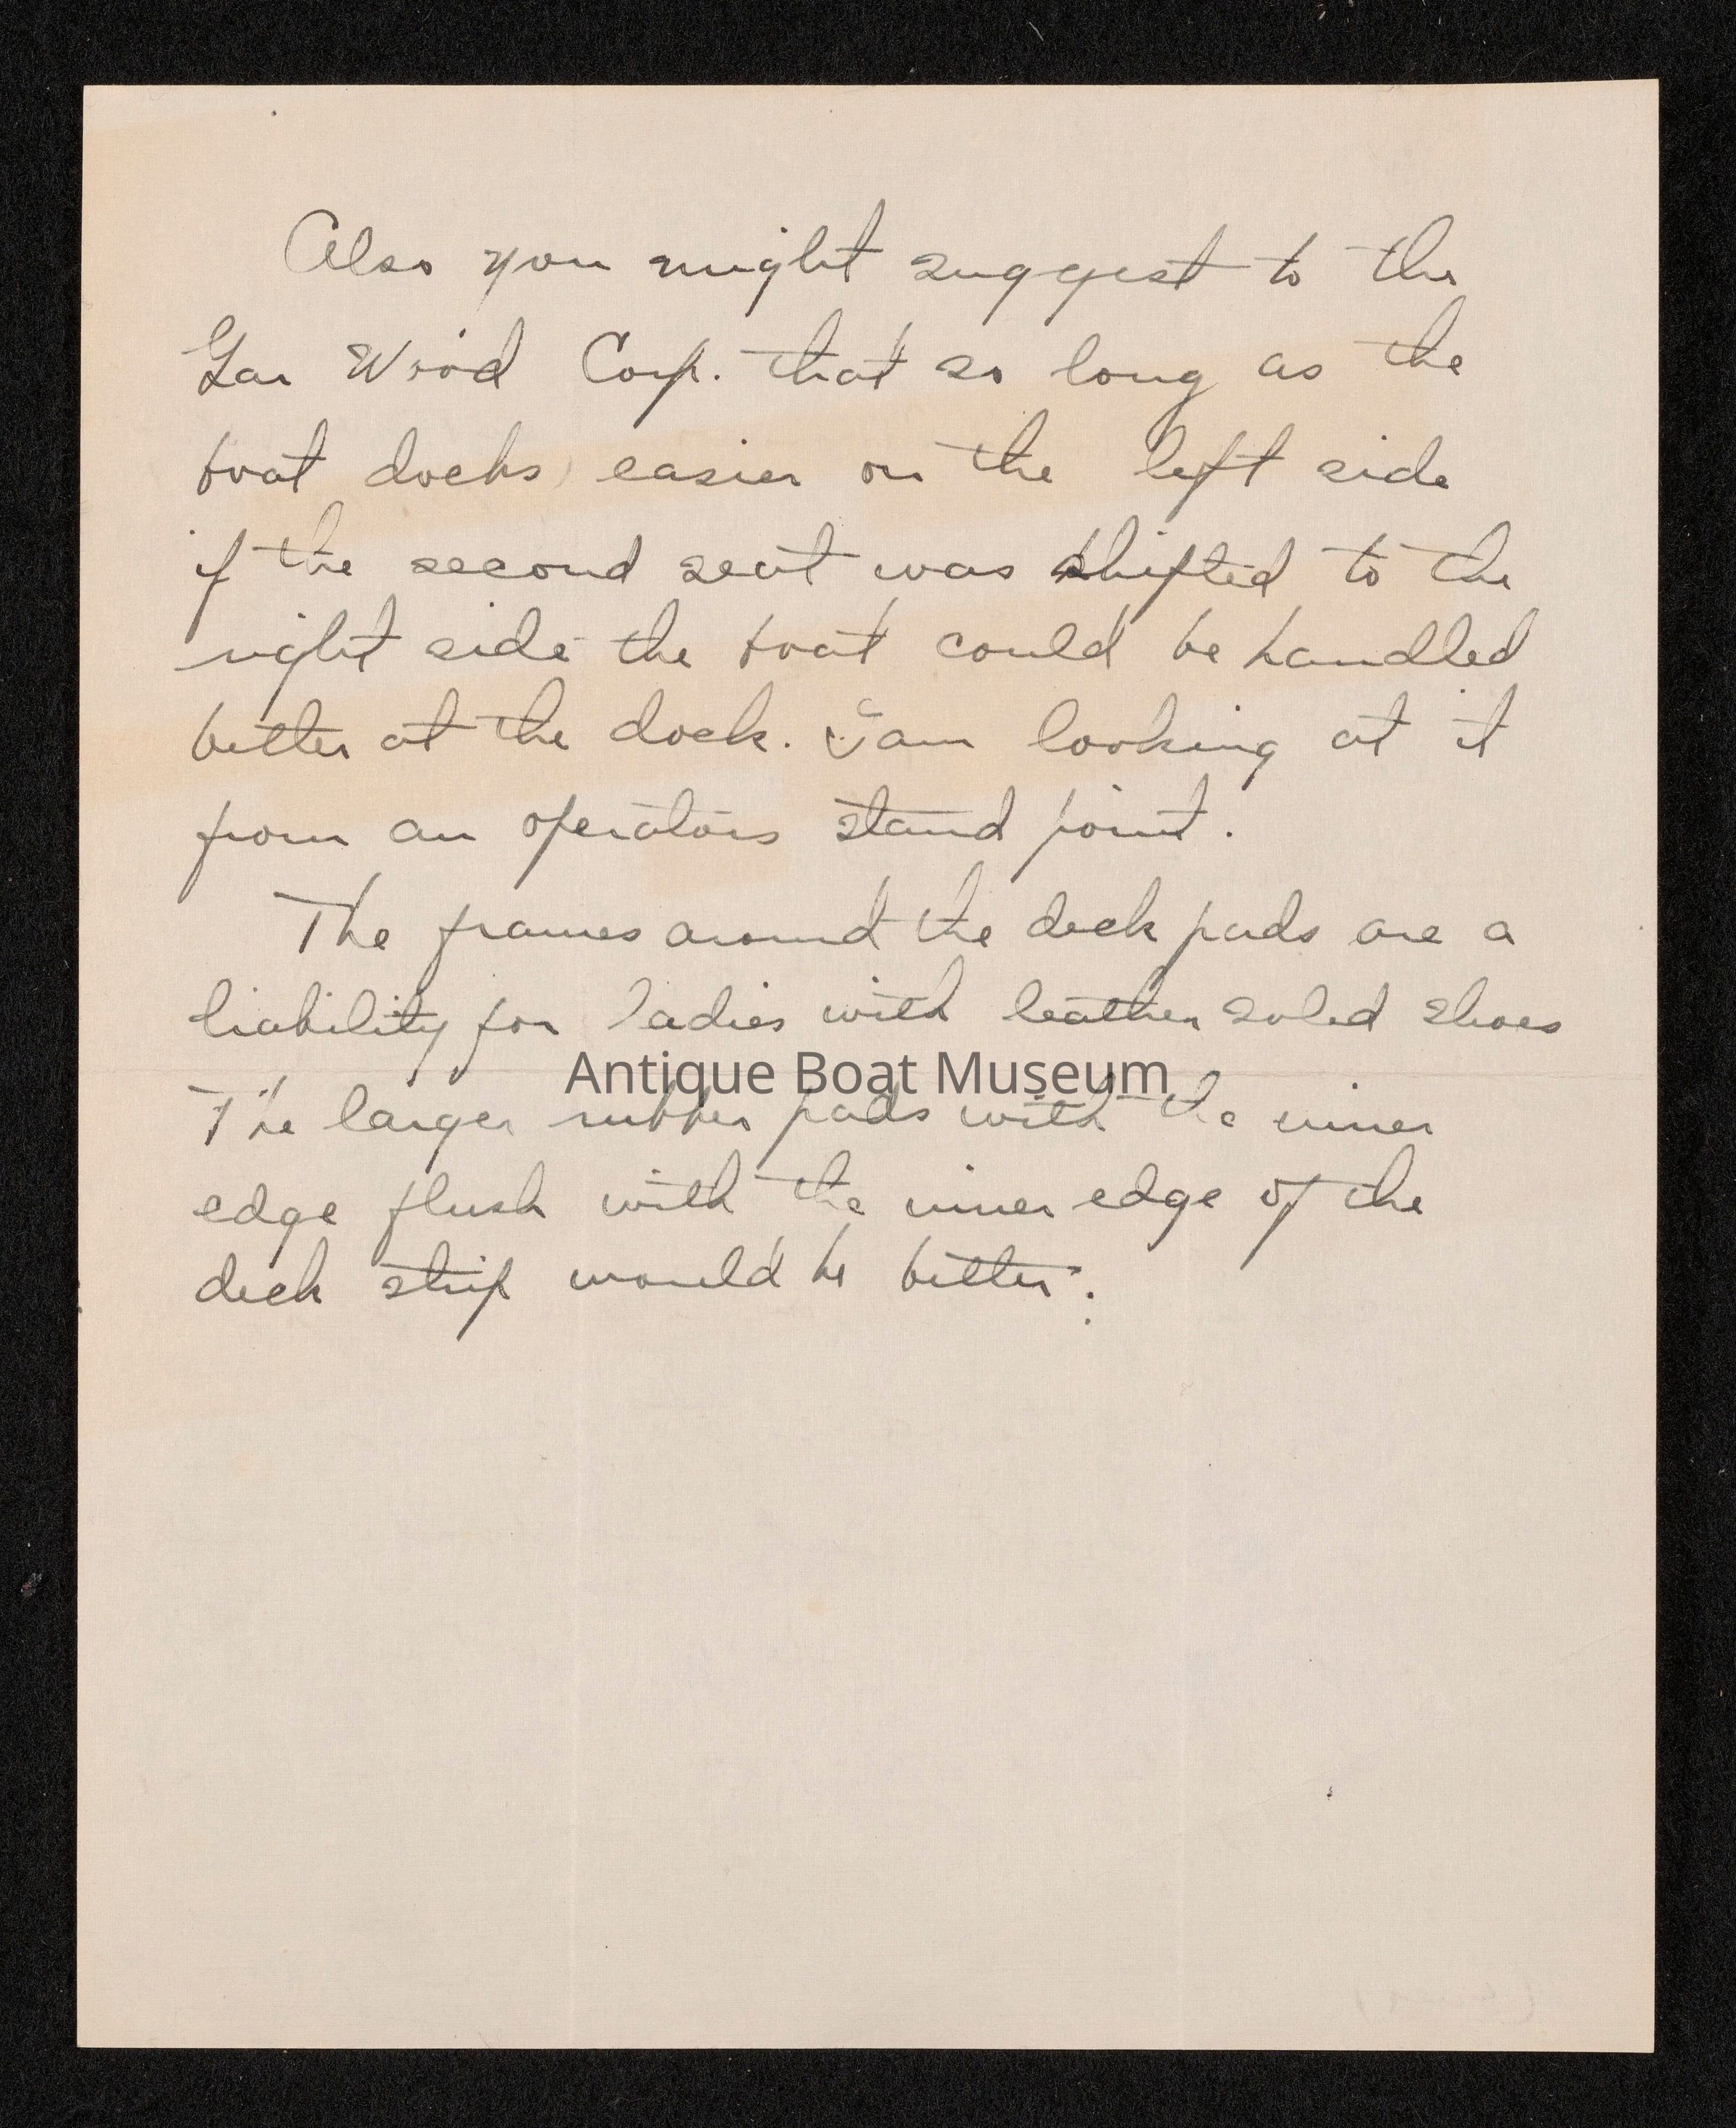 Also you might suggest to the
Gar Wood Corp. that so long as the
boat docks easier on the left side
if the second seat was shifted to the
right side the boat could be handled
better at the dock. I am looking at it
from an operators stand point.
The frames around the deck pads are a
liability for ladies with leather soled shoes
Antique Boat Museum
The larger rubber pads with the inner
edge flush with the inner edge of the
deck strip would be better.